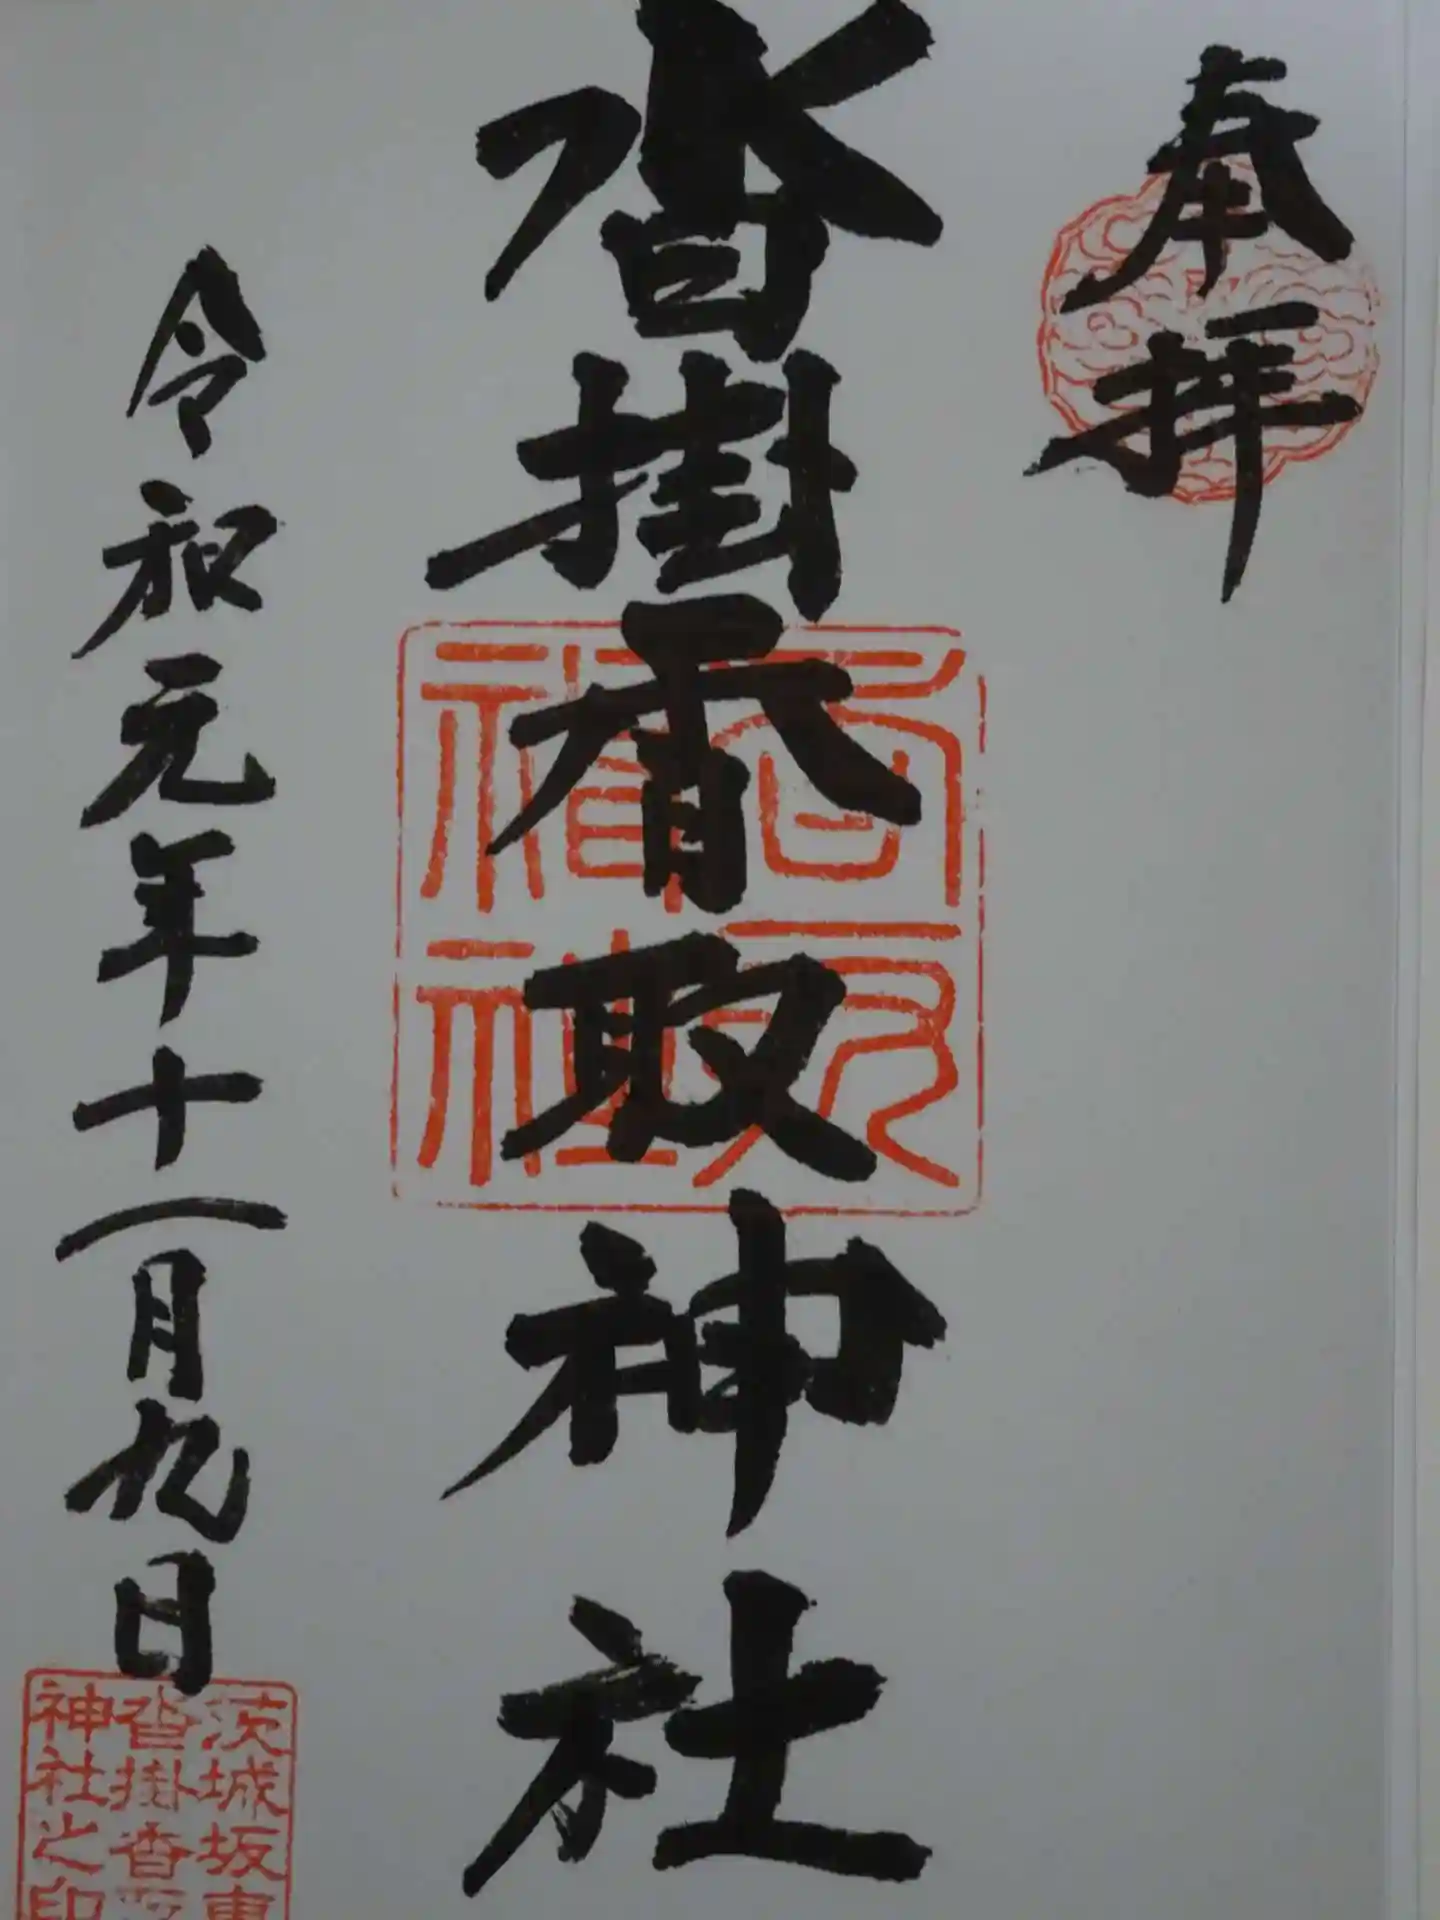 奉拝
沓掛香取神社
香取
神社
令和元年十一月九日
茨城坂東
沓掛香取
神社之印